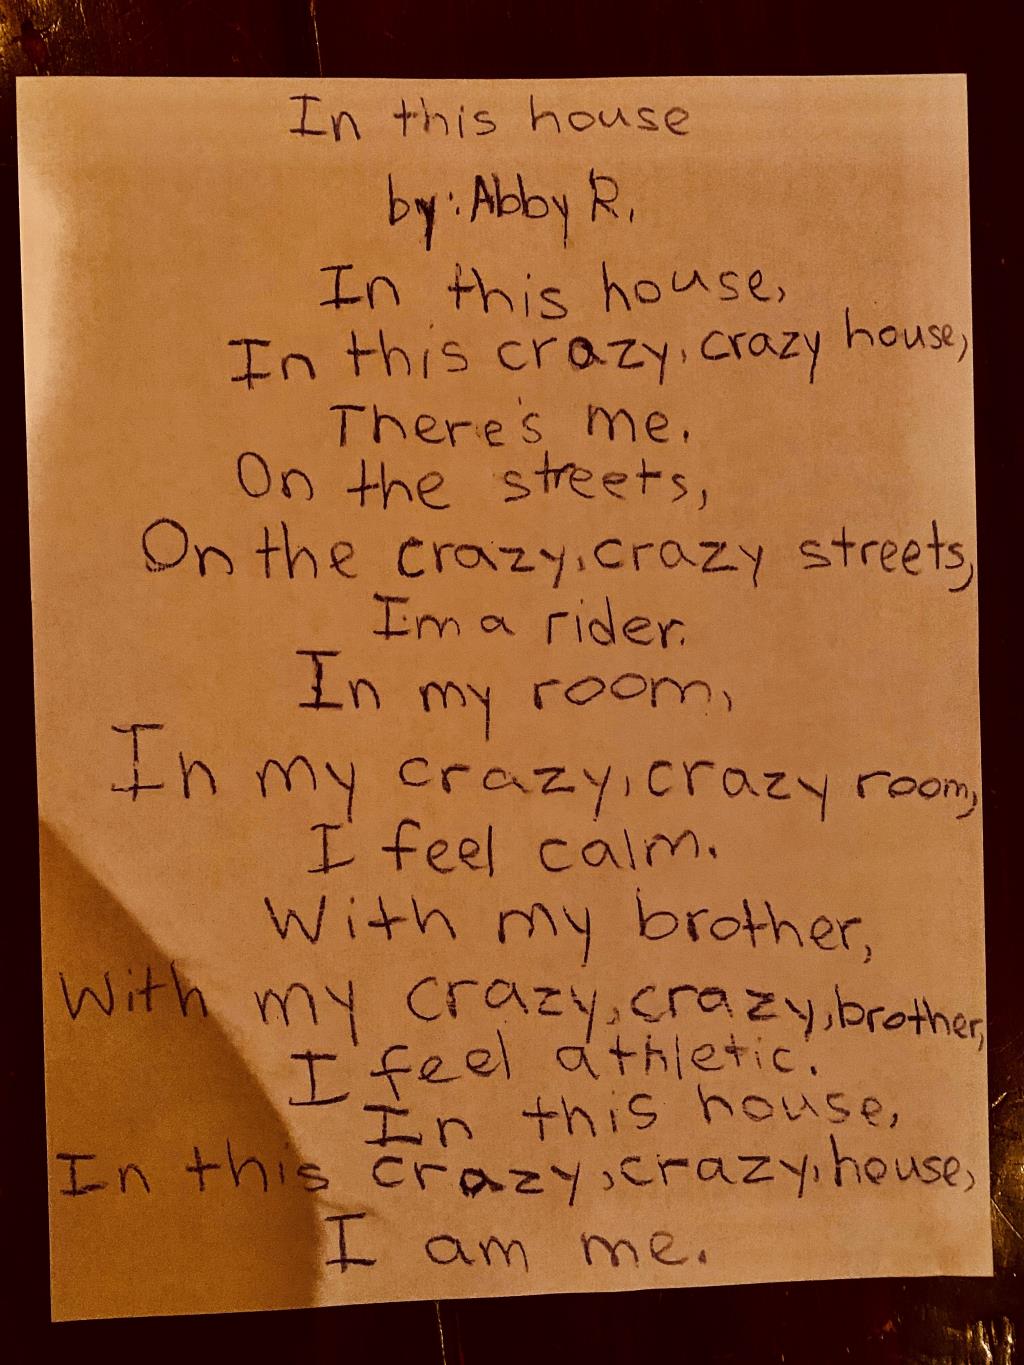 In this house
by: Abby R.
In this house,
In this crazy, crazy house,
There's me.
On the streets,
On the crazy, crazy streets,
I'm a rider.
In my room,
In my crazy, crazy room,
I feel calm.
With my brother,
With my crazy, crazy, brother,
I feel athletic.
In this house,
In this crazy, crazy, house,
I am me.